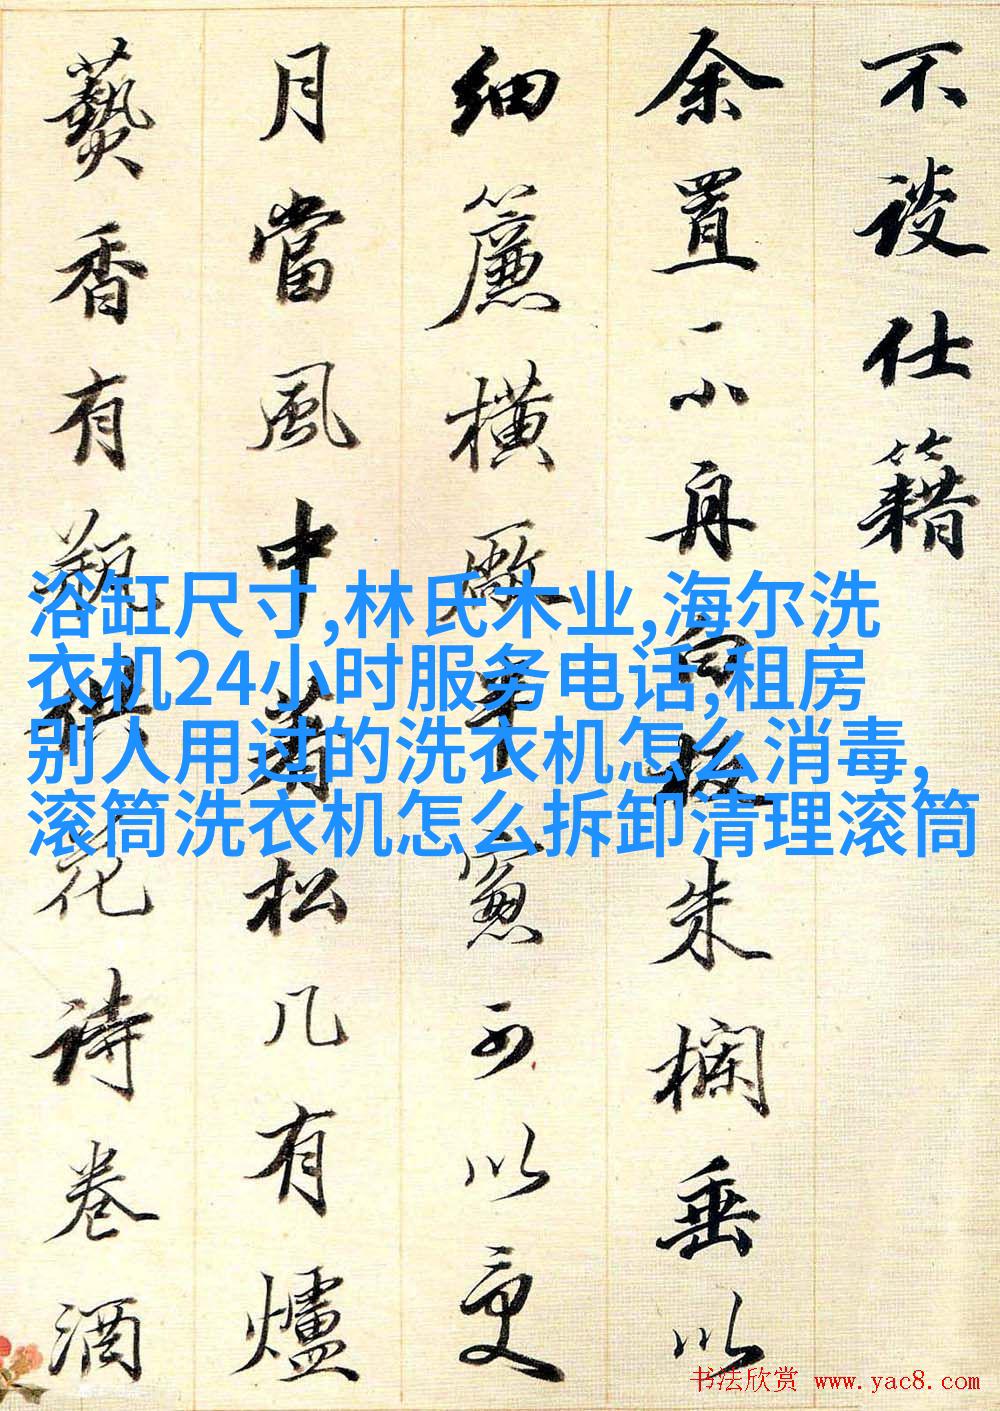 不談仕籍
余置一小舟白板朱欄垂以
細簾橫敞窻可以更
月當風中着松几有爐
爇香有觚供花詩卷酒
浴缸尺寸,林氏木业,海尔洗
衣机24小时服务电话,租房
别人用过的洗衣机怎么消毒,
滚筒洗衣机怎么拆卸清理滚筒
书法欣赏 www.yac8.com